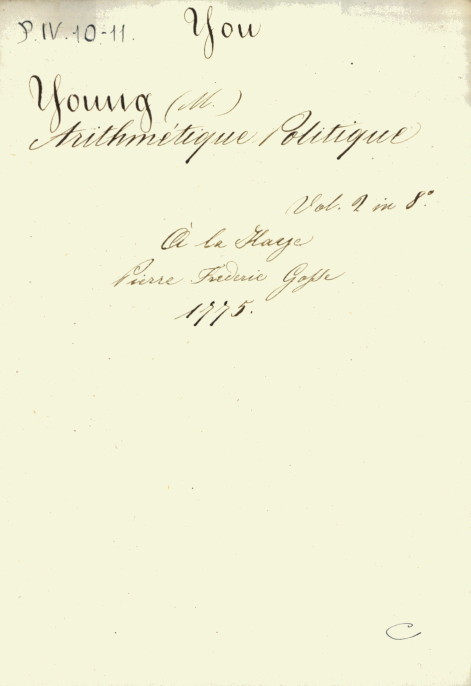 P.IV.10-11.
You
Young (M.)
Arithmétique Politique
Vol. 2 in 8.°
À la Haye
Pierre Frederic Gosse
1775.
C